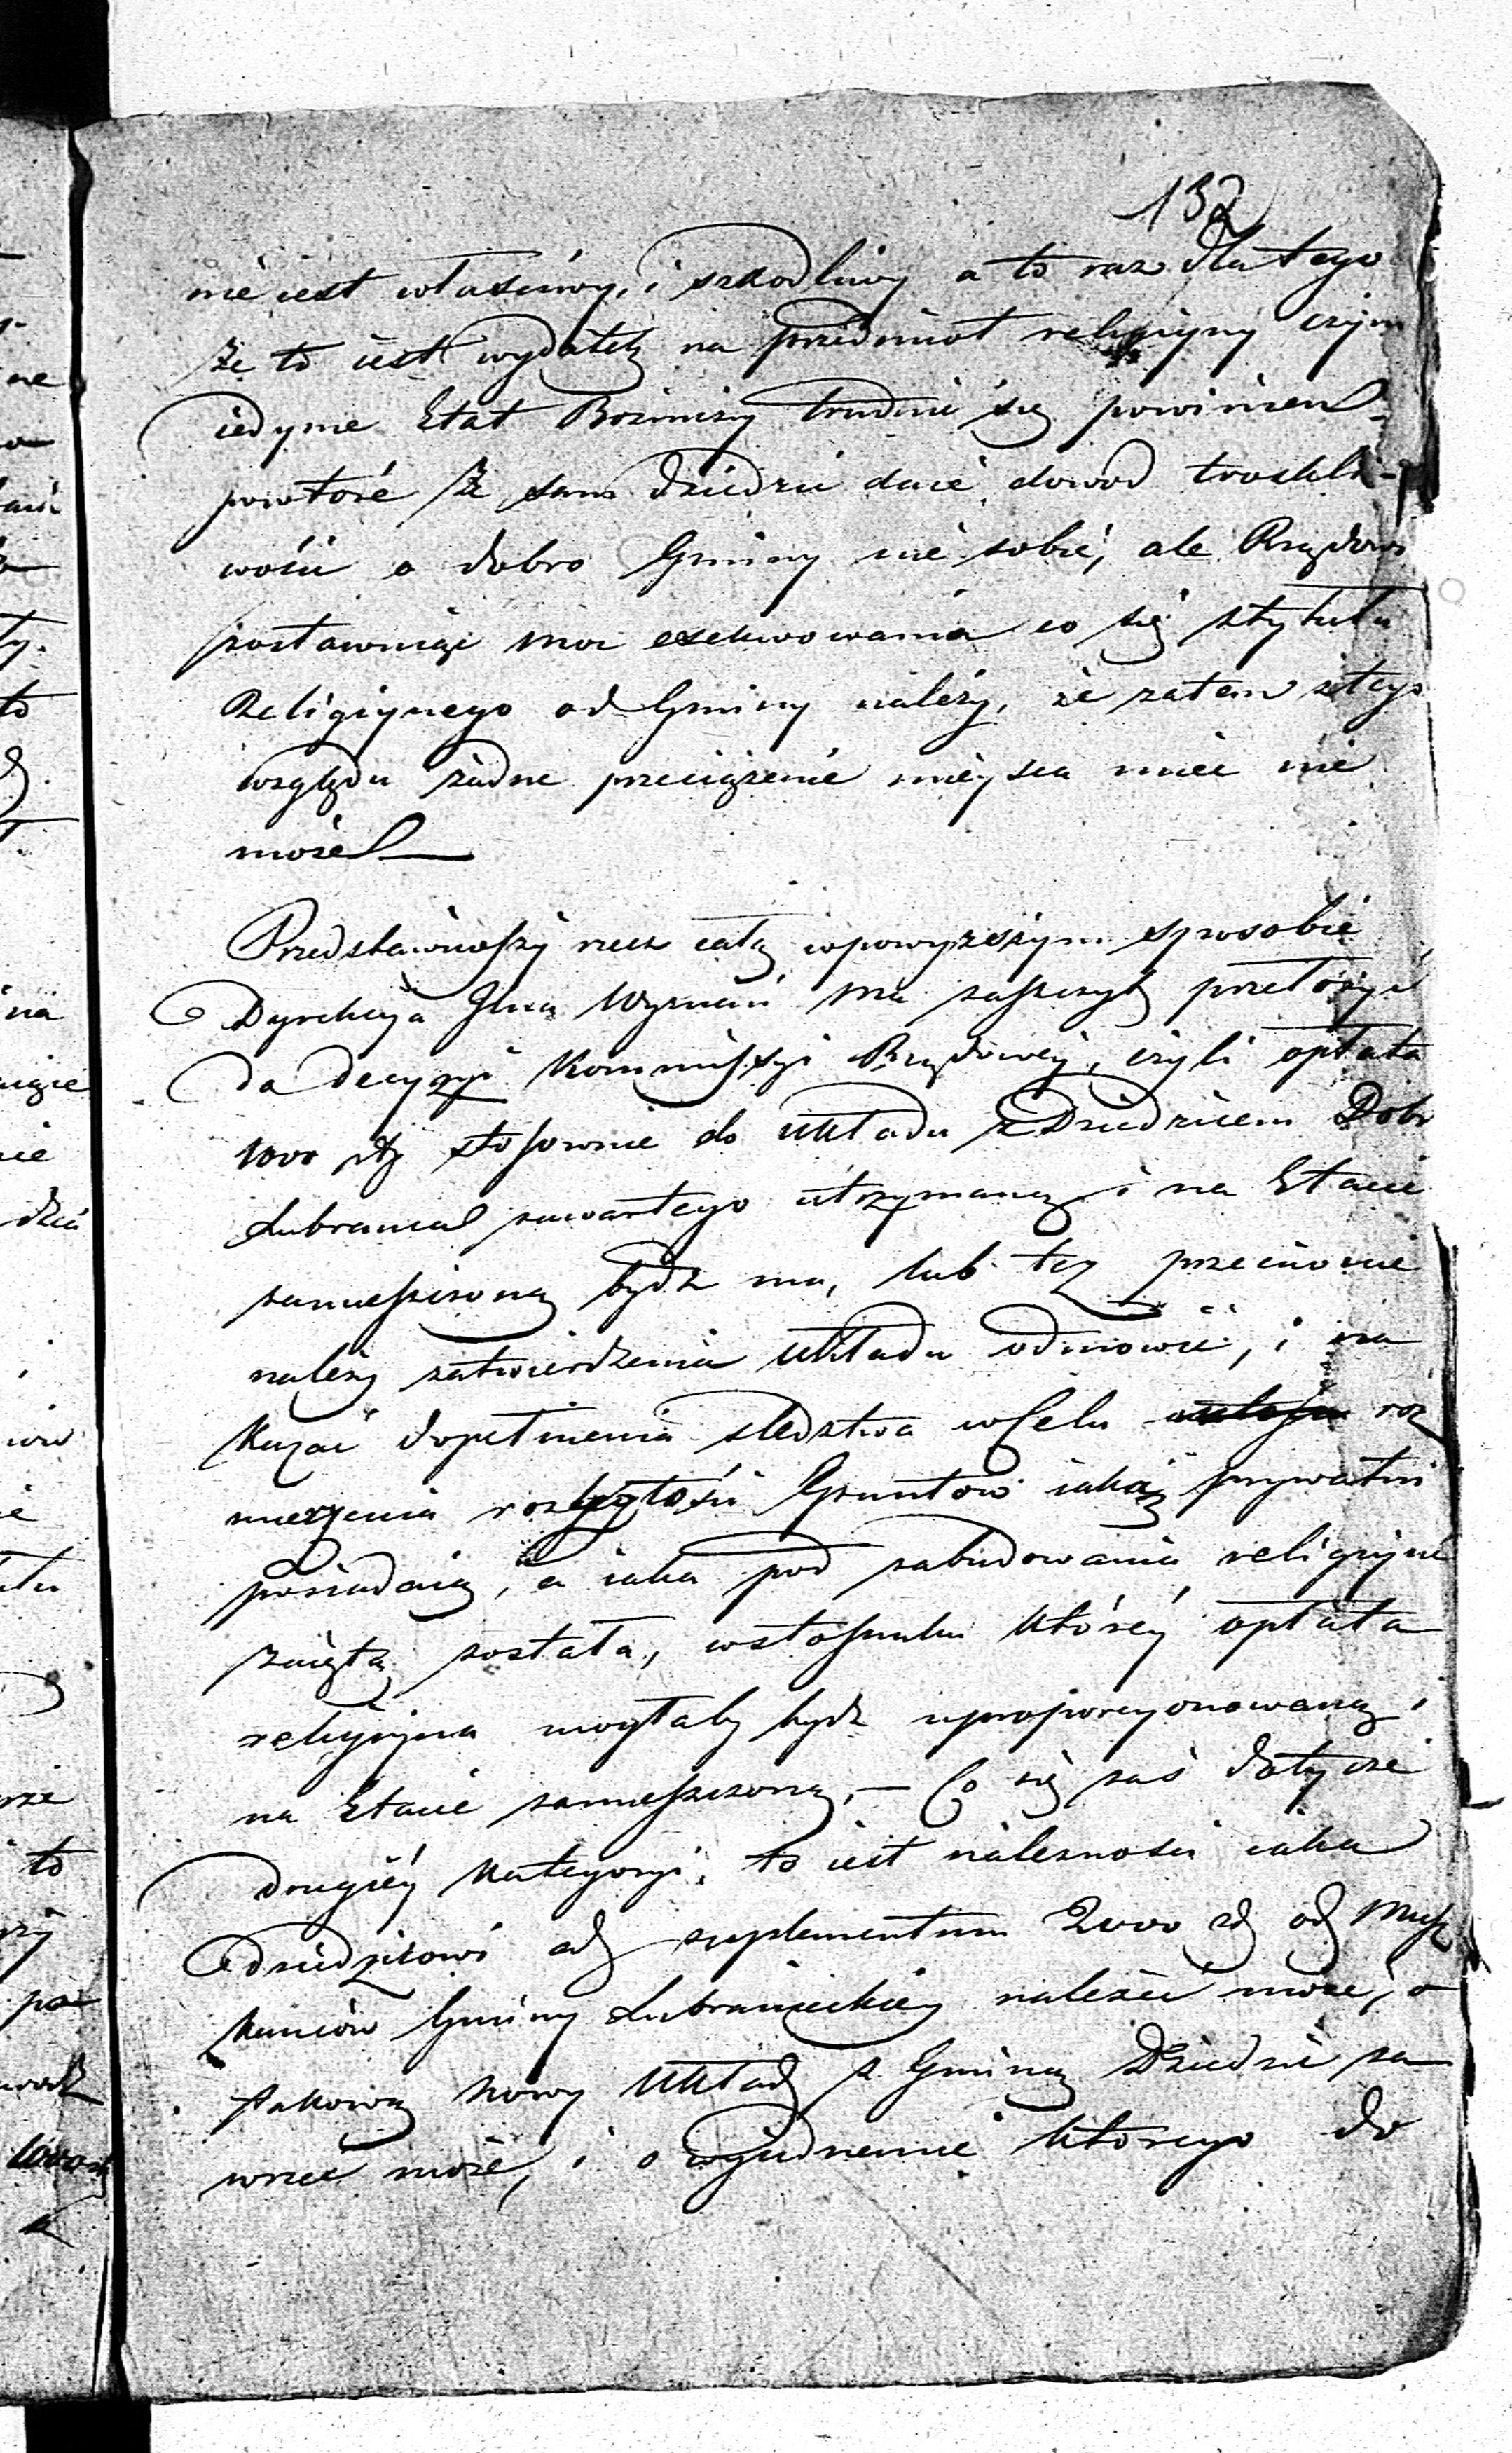 132
nie iest właściwy, i szkodliwy a to raz dla tego
że to iest wydatek na przedmiot religijny czym
iedynie Etat Bożniczy trudnić się powinien
powtóre że sam Dziedzic daie dowód troskli-
wości o dobro Gminy nie sobie, ale Rządowi
zostawuiąc moc exekwowania co się z tytułu
Religijnego od Gminy należy, że zatem z tego
względu żadne przeciążenie mieysca mieć nie
może
Przedstawiwszy rzecz całą w powyższym sposobie
Dyrekcya Glna Wyznań ma zaszczyt przełożyć
do decyzyi Kommissyi Rządowey, czyli opłata
1000 zł stosownie do układu z Dziedzicem Dobr
Lubrania zawartego utrzymaną i na Etacie
zamieszczoną bydź ma, lub też przeciwnie
należy zatwierdzenia układu odmówić, i na
kazać dopełnienia sledztwa w Celu roz
mierzenia rozległości Gruntów iaką prywatni
posiadaią, a iaka pod zabudowania religijne
zaiętą została, w stosunku któréy opłata
religijna mogłaby bydź uproporcyonowaną i
na Etacie zamieszczoną, — Co się zaś dotycze
drugiéy kategoryi, to iest należności iaka
Dziedzicowi ad suplementum 2000 zł od Miesz
kańców Gminy Lubranieckiey należeć może, o
takową nowy Układ z Gminą Dziedzic za
wrzeć może, i o zjednanie którego do